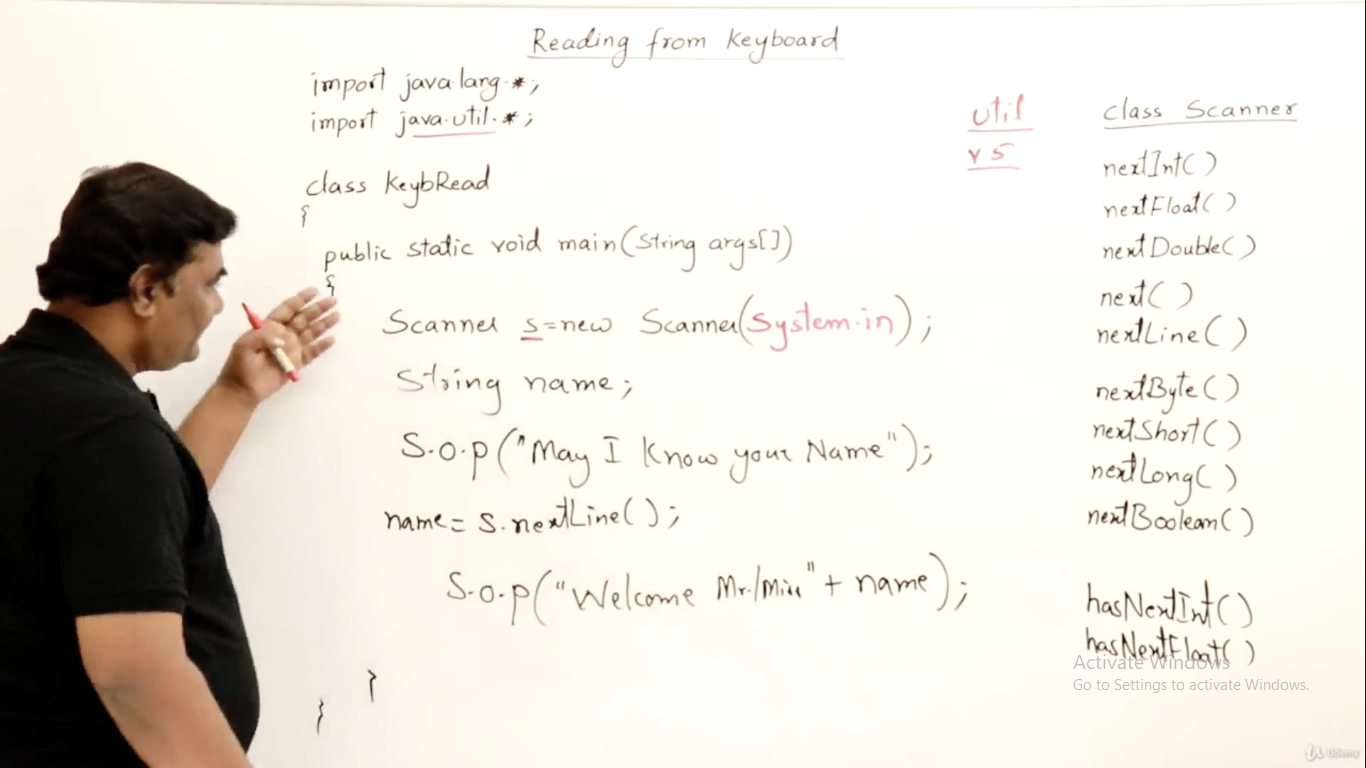 Reading from Keyboard
import java.lang.*;
import java.util.*;
class KeybRead
{
public static void main(String args[])
{
Scanner s=new Scanner(System.in);
String name;
S.o.p("May I Know your Name");
name= s.nextLine();
S.o.p("Welcome Mr./Miss"+ name);
}
}
util
v5
class Scanner
nextInt()
nextFloat()
nextDouble()
next()
nextLine()
nextByte()
nextShort()
nextLong()
nextBoolean()
hasNextInt()
hasNextFloat()
Activate Windows
Go to Settings to activate Windows.
Udemy